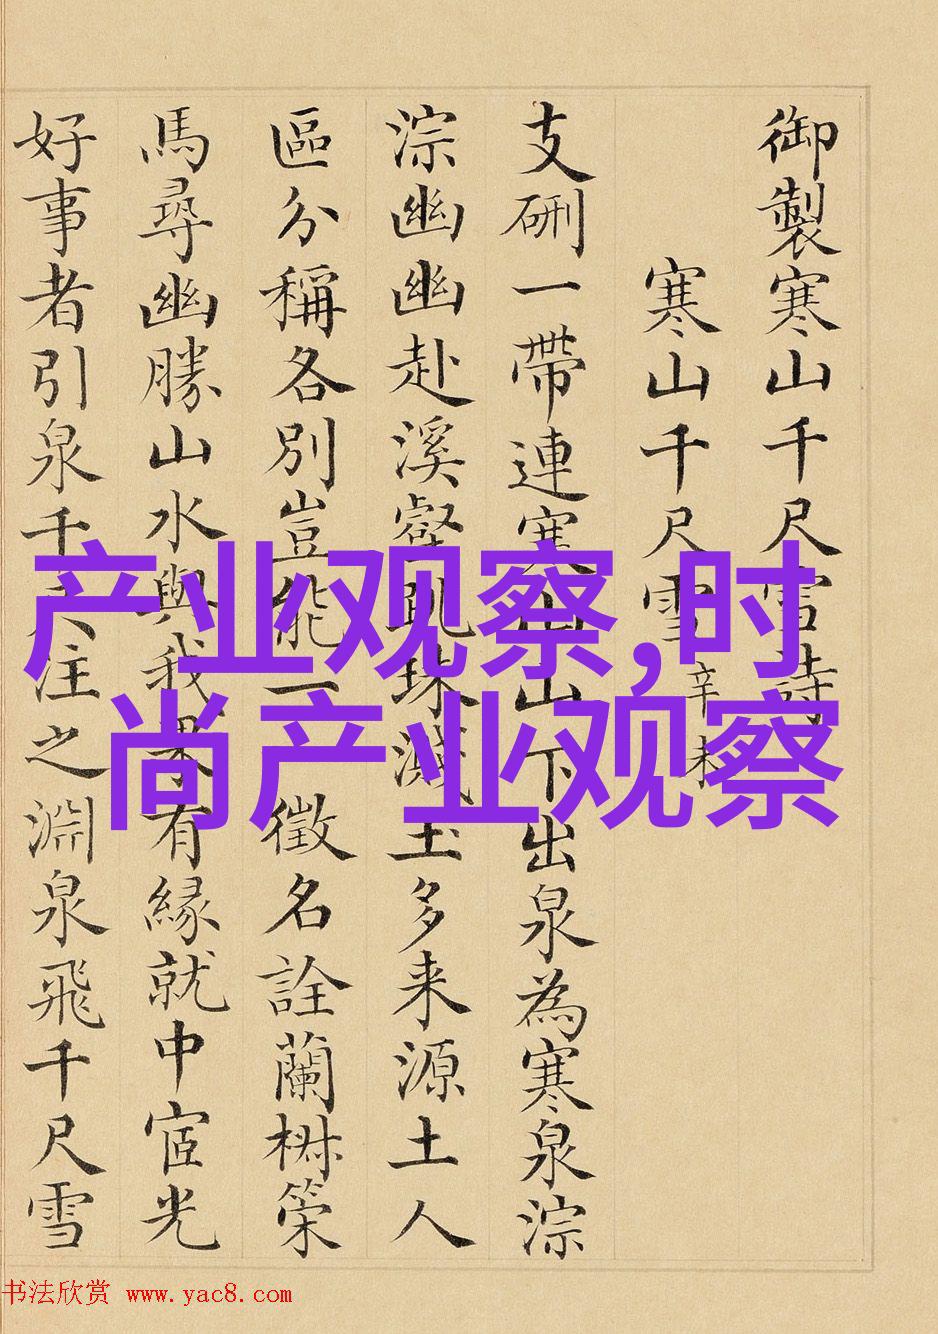 御製寒山千尺雪詩
寒山千尺雪辛未
支硎一帶連寒山山下出泉為寒泉淙
淙幽幽赴溪壑跳珠濺玉多来源土人
區分稱各別豈能一徵名詮蘭椒策
馬尋幽勝山水與我果有緣就中宧光
好事者引泉千尺注之淵泉飛千尺雪
产业观察,时
尚产业观察
书法欣赏 www.yac8.com